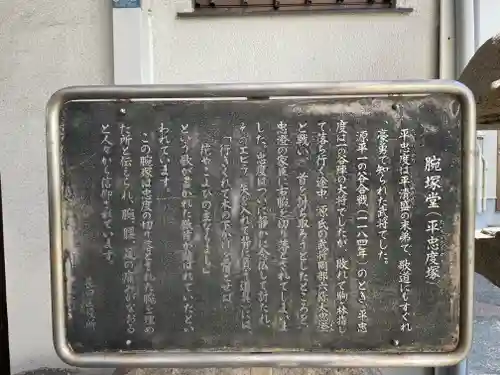 腕塚堂(平忠度塚)
平忠度は平清盛の末弟で、歌道にもすぐれ
豪勇で知られた武将でした。
源平一の谷合戦(一一八四年)のとき、平忠
度は一の谷陣の大将でしたが、敗れて駒ヶ林指し
て落ち行く途中、源氏の武将岡部六弥太忠澄
と戦い、首を討ち取ろうとしたところを、
忠澄の家臣に右腕を切り落とされてしまいま
した。忠度はついに静かに念仏して討たれ、
そのエビラ(矢を入れて背に負う道具)には、
「行きくれて木の下かげを宿とせば
花やこよひの主ならまし」
という歌が書かれた紙片が結ばれていたとい
われています。
この腕塚は忠度の切り落とされた腕を埋め
た所と伝えられ、腕、腰、足の痛みがなおる
と人々から信仰されています。
長田区役所